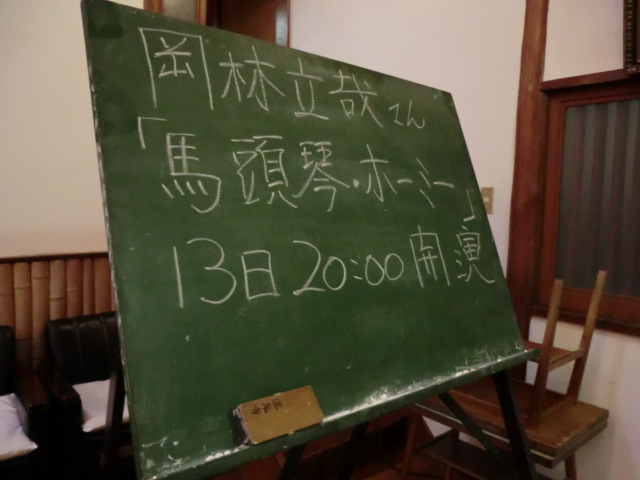 岡林立哉さん
「馬頭琴・ホーミー」
13日20:00開演